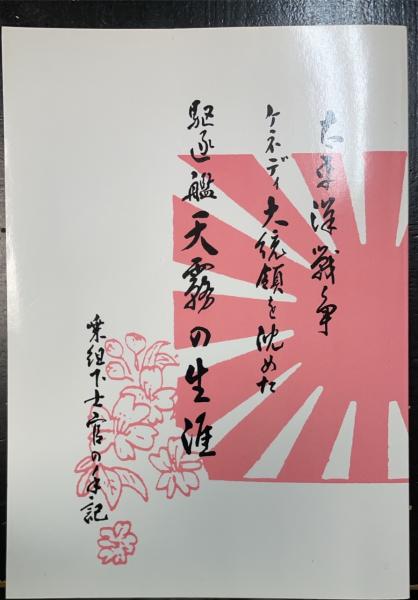 太平洋戦争
ケネディ大統領を沈めた
駆逐艦天霧の生涯
乗組下士官の手記